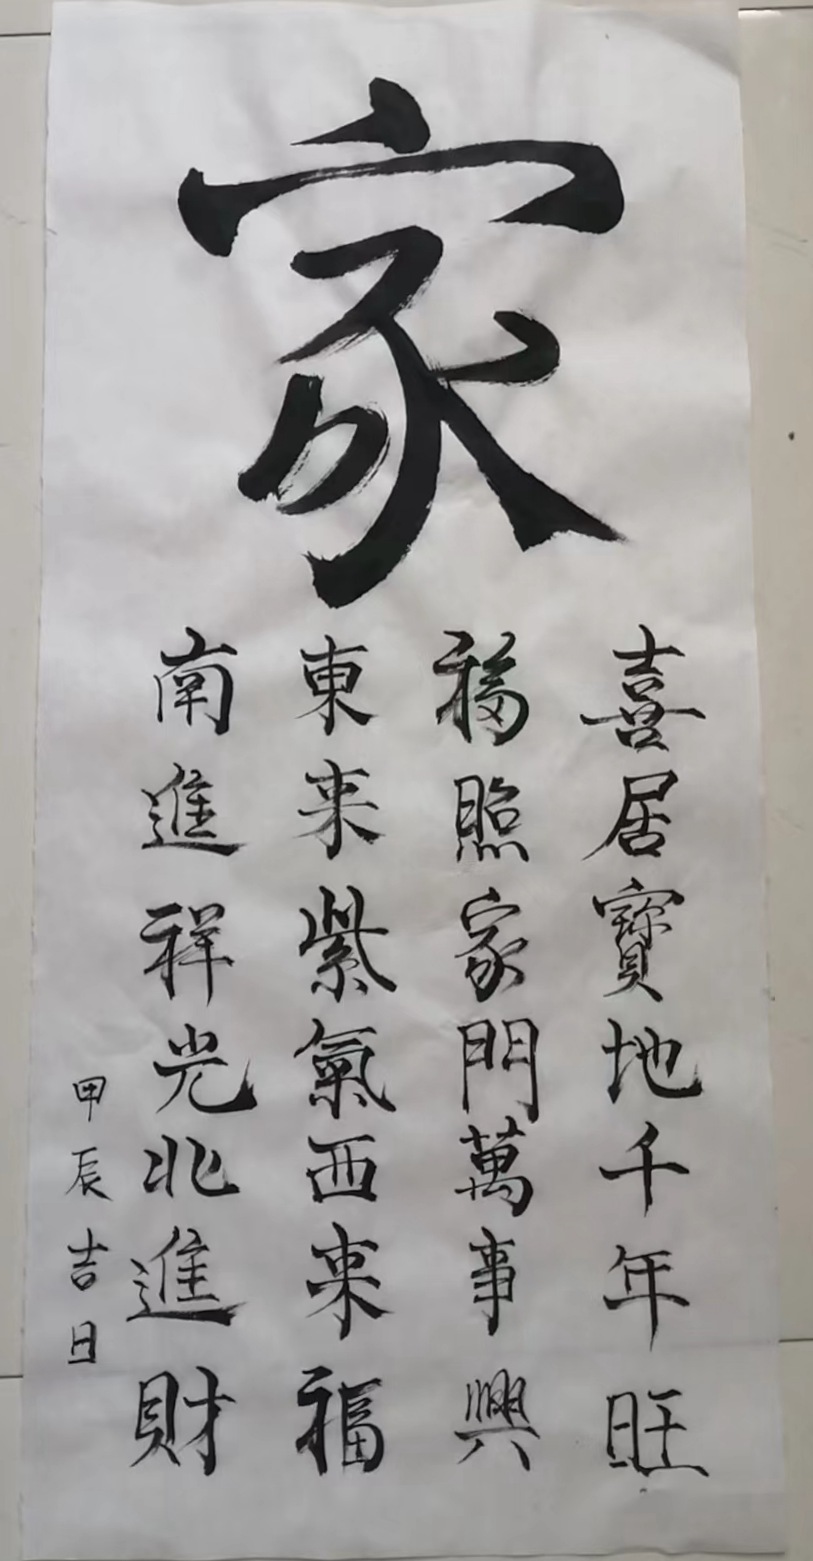 家
喜居寶地千年旺
福照家門萬事興
東来紫氣西来福
南進祥光北進財
甲辰吉日